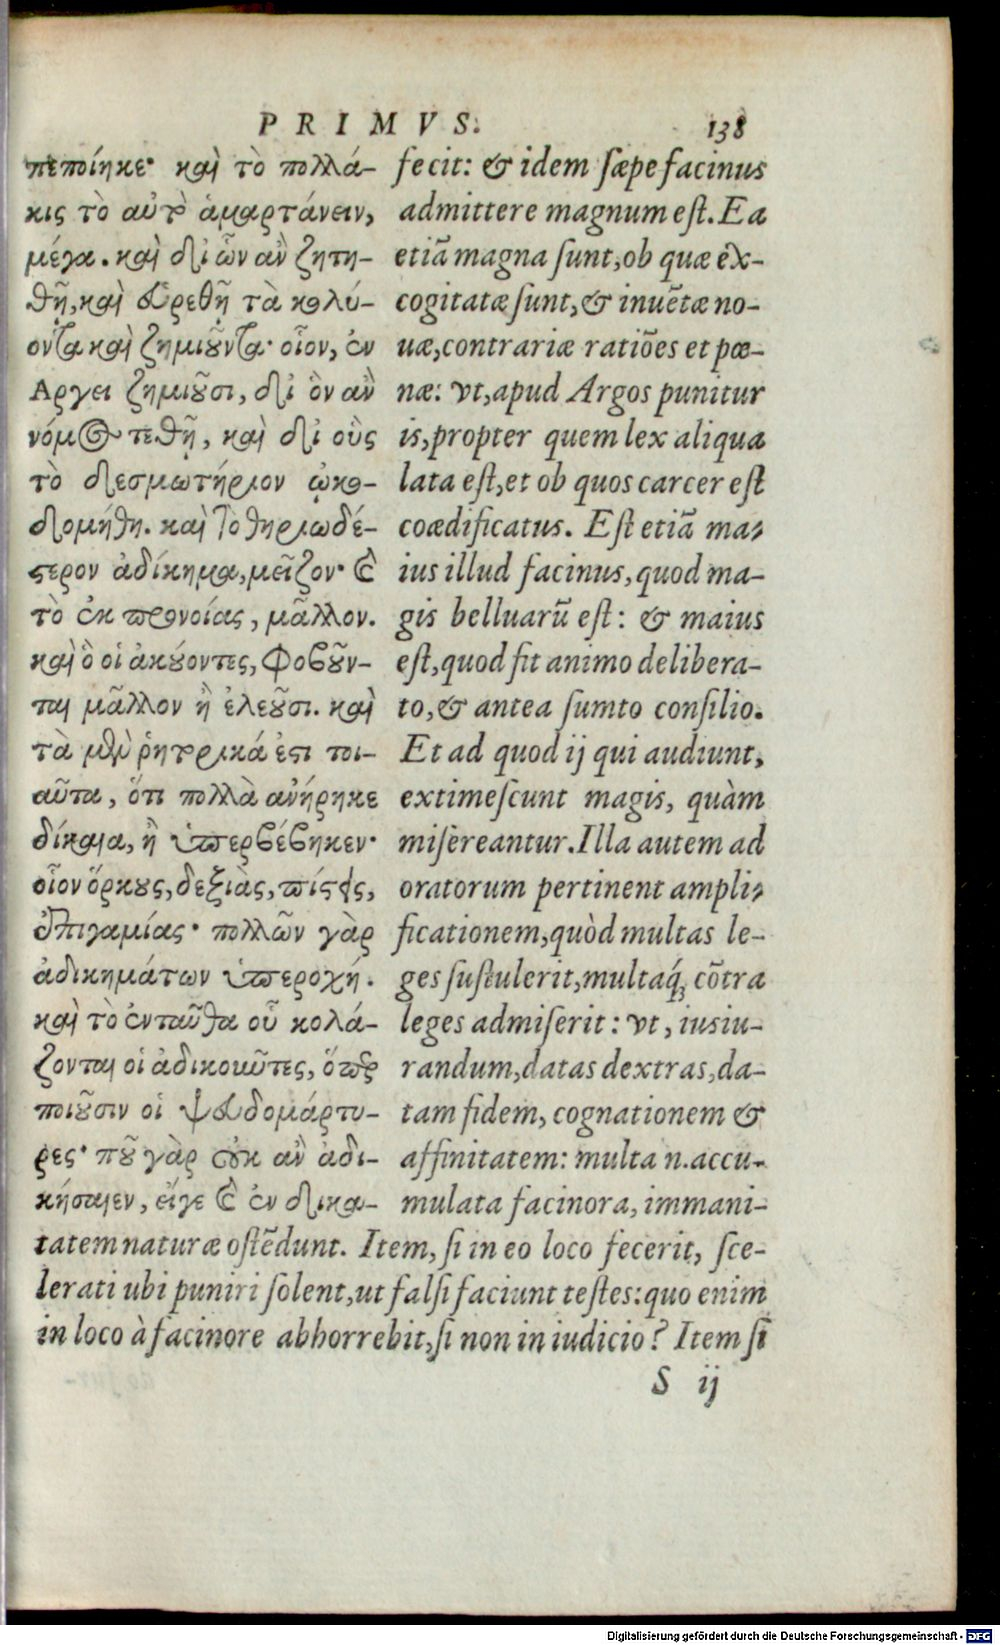 PRIMVS. 138
πεποίηκε· καὶ τὸ πολλά-
κις τὸ αὐτὸ ἁμαρτάνειν,
μέγα. καὶ δι' ὧν ἂν ζητη-
θῇ, καὶ εὑρεθῇ τὰ κωλύ-
οντα καὶ ζημιοῦντα· οἷον, ἐν
Αργει ζημιοῦσι, δι' ὃν ἂν
νόμος τεθῇ, καὶ δι' οὓς
τὸ δεσμωτήριον ᾠκο-
δομήθη. καὶ τὸ θηριωδέ-
στερον ἀδίκημα, μεῖζον· καὶ
τὸ ἐκ προνοίας, μᾶλλον.
καὶ ὃ οἱ ἀκούοντες, φοβοῦν-
ται μᾶλλον ἢ ἐλεοῦσι. καὶ
τὰ μὲν ῥητορικά ἐστι τοι-
αῦτα, ὅτι πολλὰ ἀνῄρηκε
δίκαια, ἢ ὑπερβέβηκεν·
οἷον ὅρκους, δεξιὰς, πίστεις,
ἐπιγαμίας· πολλῶν γὰρ
ἀδικημάτων ὑπεροχή.
καὶ τὸ ἐνταῦθα οὗ κολά-
ζονται οἱ ἀδικοῦντες, ὅπερ
ποιοῦσιν οἱ ψευδομάρτυ-
ρες· ποῦ γὰρ οὐκ ἂν ἀδι-
κήσαιεν, εἴγε καὶ ἐν δικα-
fecit: & idem sæpe facinus
admittere magnum est. Ea
etiā magna sunt, ob quæ ex-
cogitatæ sunt, & inuētæ no-
uæ, contrariæ ratiōes et pœ-
næ: vt, apud Argos punitur
is, propter quem lex aliqua
lata est, et ob quos carcer est
coædificatus. Est etiā ma-
ius illud facinus, quod ma-
gis belluarū est: & maius
est, quod fit animo delibera-
to, & antea sumto consilio.
Et ad quod ij qui audiunt,
extimescunt magis, quàm
misereantur. Illa autem ad
oratorum pertinent ampli-
ficationem, quòd multas le-
ges sustulerit, multaq́; cōtra
leges admiserit: vt, iusiu-
randum, datas dextras, da-
tam fidem, cognationem &
affinitatem: multa n. accu-
mulata facinora, immani-
tatem naturæ ostēdunt. Item, si in eo loco fecerit, sce-
lerati ubi puniri solent, ut falsi faciunt testes: quo enim
in loco à facinore abhorrebit, si non in iudicio? Item si
S ij
Digitalisierung gefördert durch die Deutsche Forschungsgemeinschaft - DFG